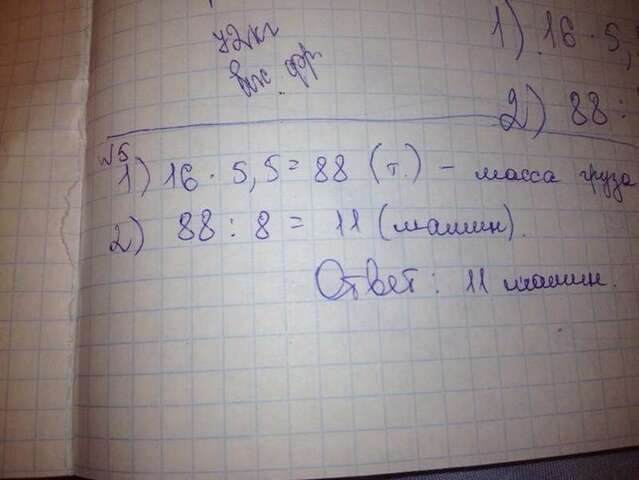 72кг
вис. фр.
1) 16 · 5,
2) 88 :
№5
1) 16 · 5,5 = 88 (т.) - масса груза
2) 88 : 8 = 11 (машин).
Ответ: 11 машин.